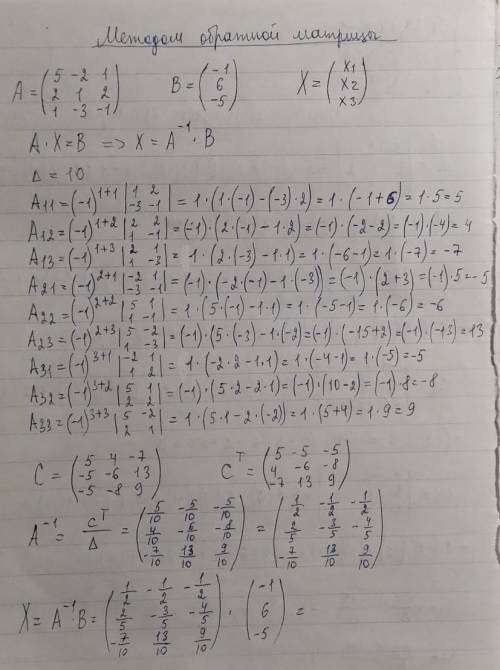 Методом обратной матрицы
A = (5 -2 1; 2 1 2; 1 -3 -1) B = (-1; 6; -5) X = (x1; x2; x3)
A·X=B => X = A^-1 · B
Δ = 10
A11 = (-1)^1+1 |1 2; -3 -1| = 1·(1·(-1) - (-3)·2) = 1·(-1+6) = 1·5 = 5
A12 = (-1)^1+2 |2 2; 1 -1| = (-1)·(2·(-1) - 1·2) = (-1)·(-2-2) = (-1)·(-4) = 4
A13 = (-1)^1+3 |2 1; 1 -3| = 1·(2·(-3) - 1·1) = 1·(-6-1) = 1·(-7) = -7
A21 = (-1)^2+1 |-2 1; -3 -1| = (-1)·(-2·(-1) - 1·(-3)) = (-1)·(2+3) = (-1)·5 = -5
A22 = (-1)^2+2 |5 1; 1 -1| = 1·(5·(-1) - 1·1) = 1·(-5-1) = 1·(-6) = -6
A23 = (-1)^2+3 |5 -2; 1 -3| = (-1)·(5·(-3) - 1·(-2) = (-1)·(-15+2) = (-1)·(-13) = 13
A31 = (-1)^3+1 |-2 1; 1 2| = 1·(-2·2 - 1·1) = 1·(-4-1) = 1·(-5) = -5
A32 = (-1)^3+2 |5 1; 2 2| = (-1)·(5·2 - 2·1) = (-1)·(10-2) = (-1)·8 = -8
A33 = (-1)^3+3 |5 -2; 2 1| = 1·(5·1 - 2·(-2)) = 1·(5+4) = 1·9 = 9
C = (5 4 -7; -5 -6 13; -5 -8 9) C^T = (5 -5 -5; 4 -6 -8; -7 13 9)
A^-1 = C^T/Δ = (5/10 -5/10 -5/10; 4/10 -6/10 -8/10; -7/10 13/10 9/10) = (1/2 -1/2 -1/2; 2/5 -3/5 -4/5; -7/10 13/10 9/10)
X = A^-1·B = (1/2 -1/2 -1/2; 2/5 -3/5 -4/5; -7/10 13/10 9/10) · (-1; 6; -5) =